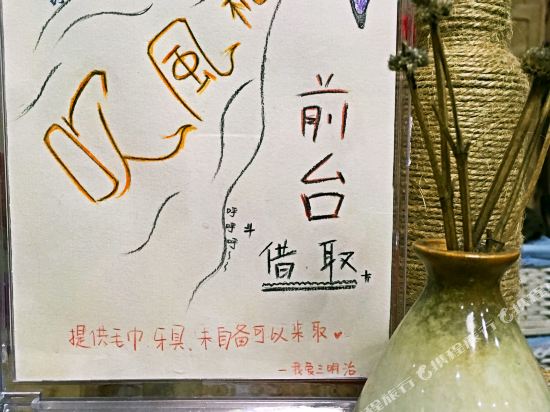 吹風
前台
借取
呼
呼
呼~
提供毛巾、牙具、未自备可以来取♥
—我爱三明治
携程旅行